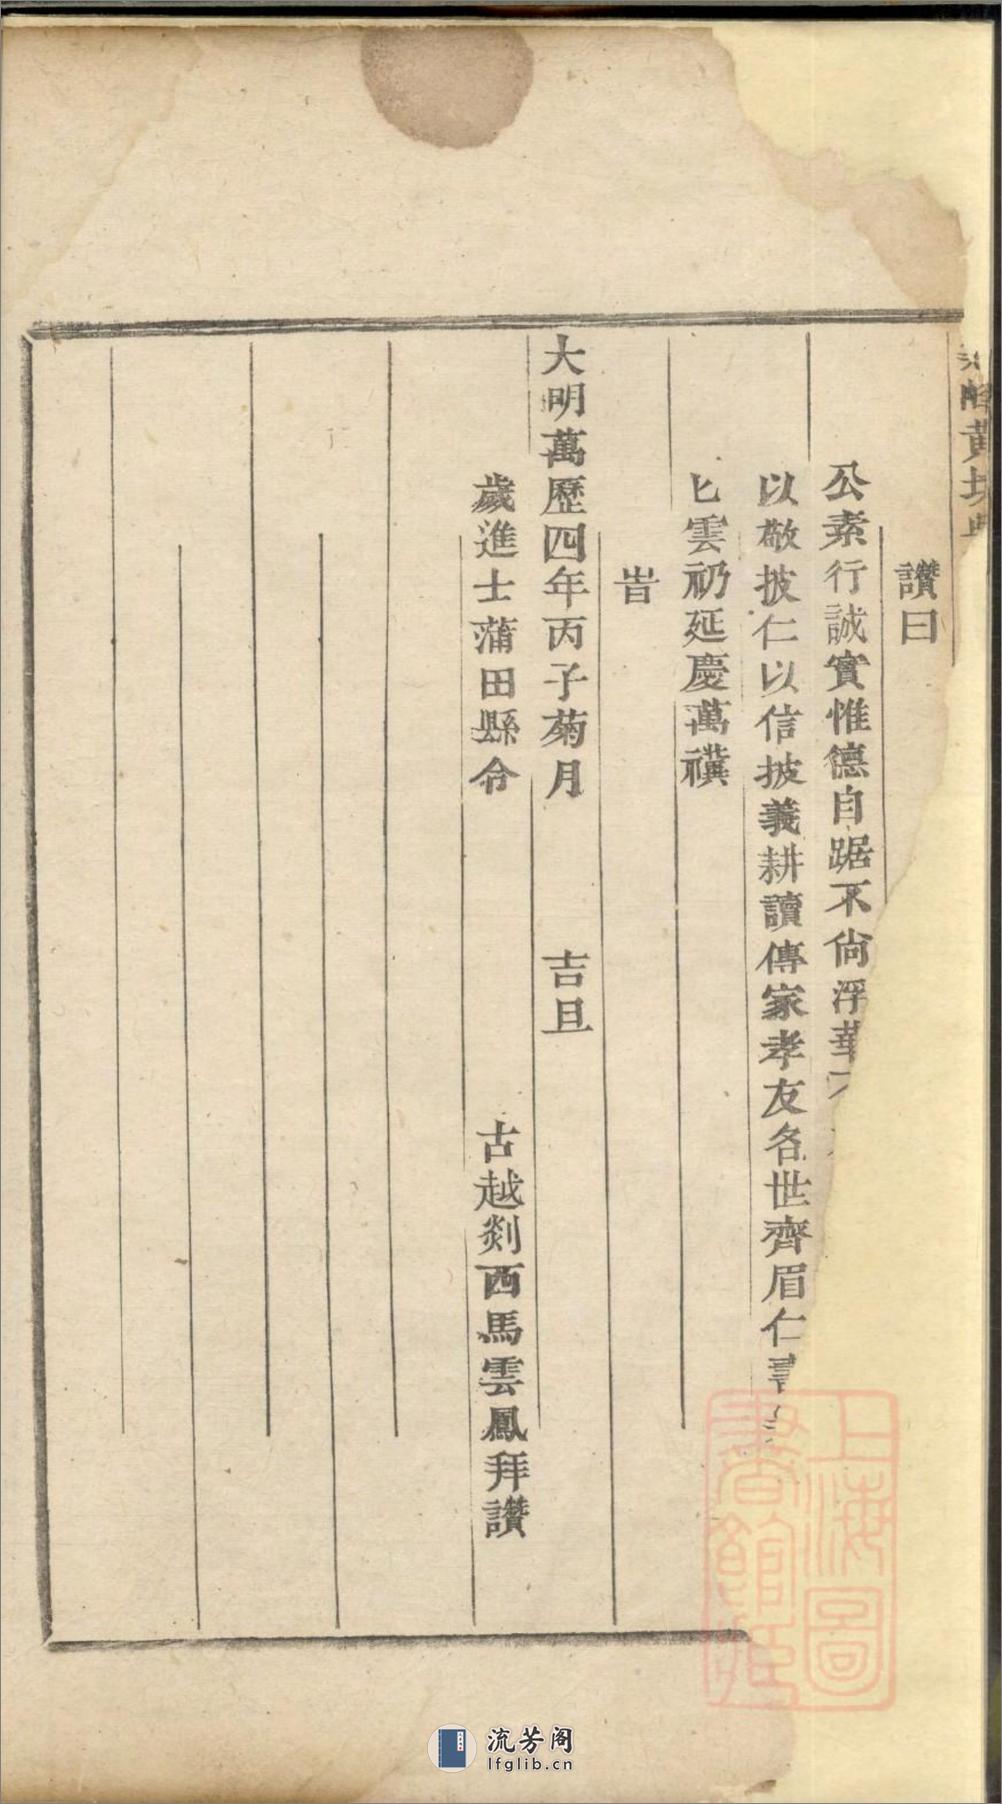 黃
讚曰
公素行誠實惟德自踞不尙浮華
以敬披仁以信披義耕讀傳家孝友各世齊眉仁
匕雲礽延慶萬禩
旹
大明萬歷四年丙子菊月 吉旦
歲進士蒲田縣令 古越剡西馬雲鳳拜讚
上海圖書館藏
流芳阁
lfglib.cn